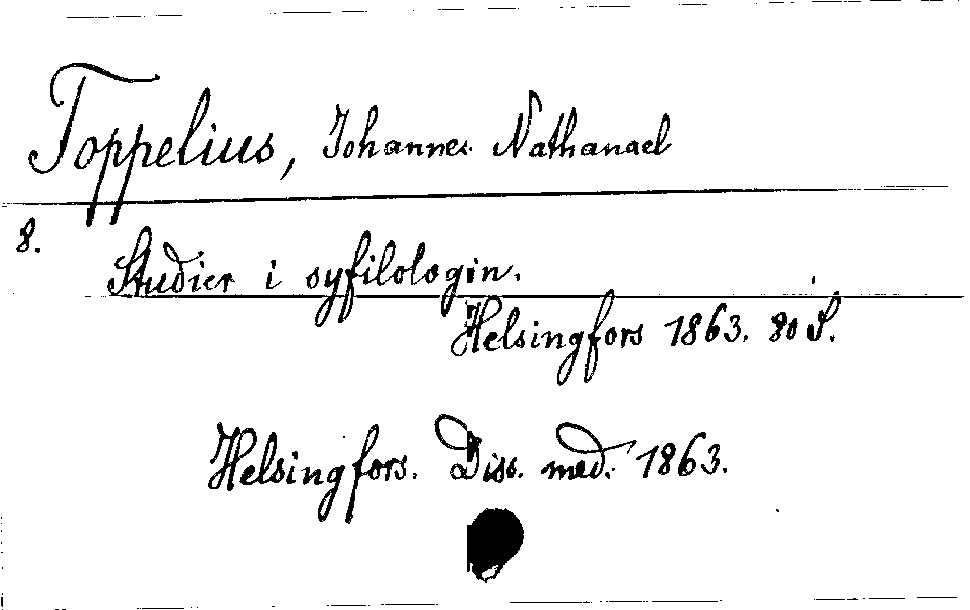 Toppelius, Johannes Nathanael
8.
Studier i syfilologin.
Helsingfors 1863. 80 S.
Helsingfors. Diss. med. 1863.